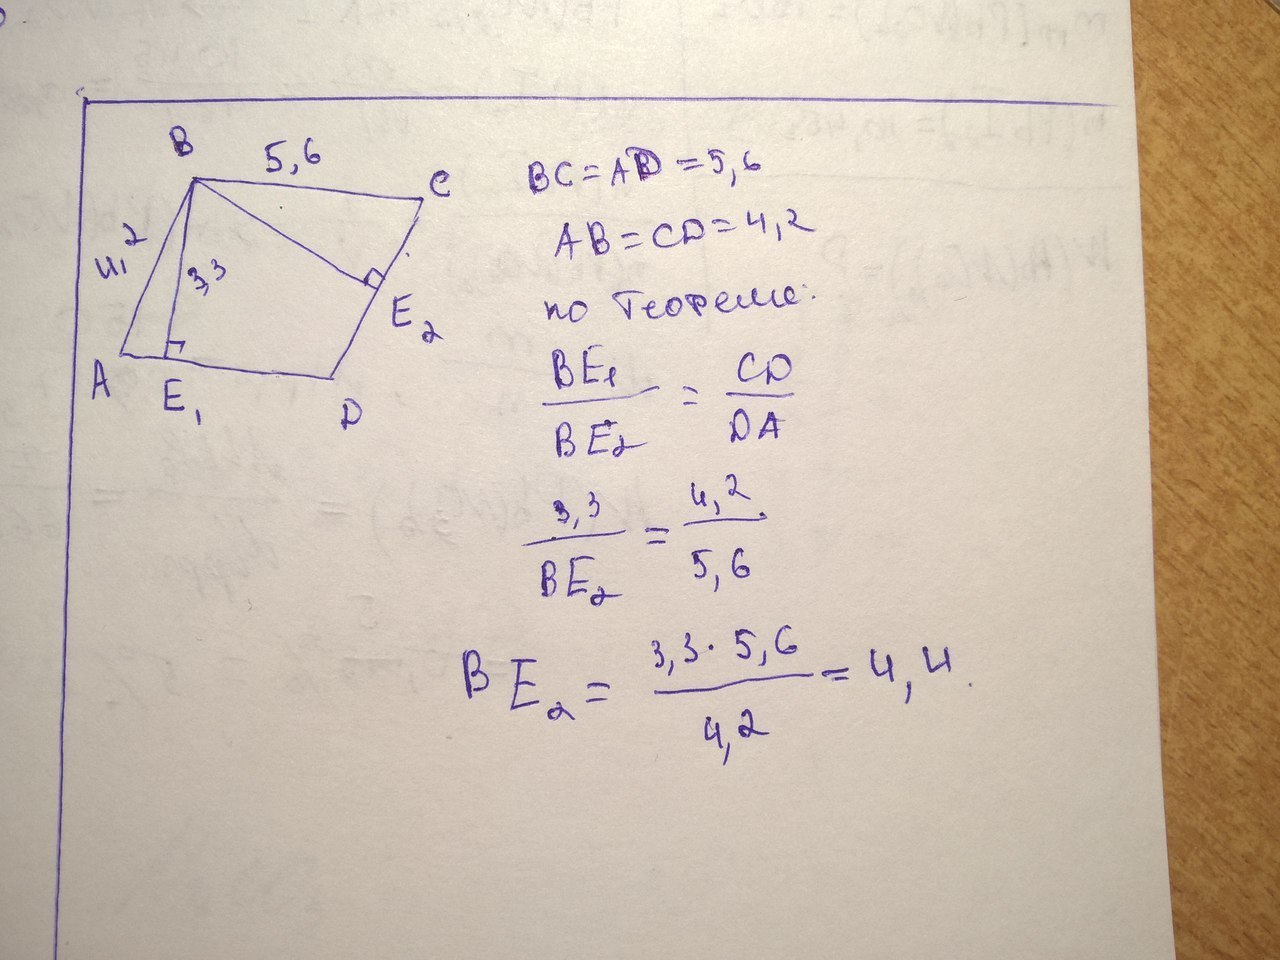 B
5,6
C
4,2
3,3
A
E₁
D
E₂
BC = AD = 5,6
AB = CD = 4,2
по теореме:
BE₁ / BE₂ = CD / DA
3,3 / BE₂ = 4,2 / 5,6
BE₂ = 3,3 · 5,6 / 4,2 = 4,4.